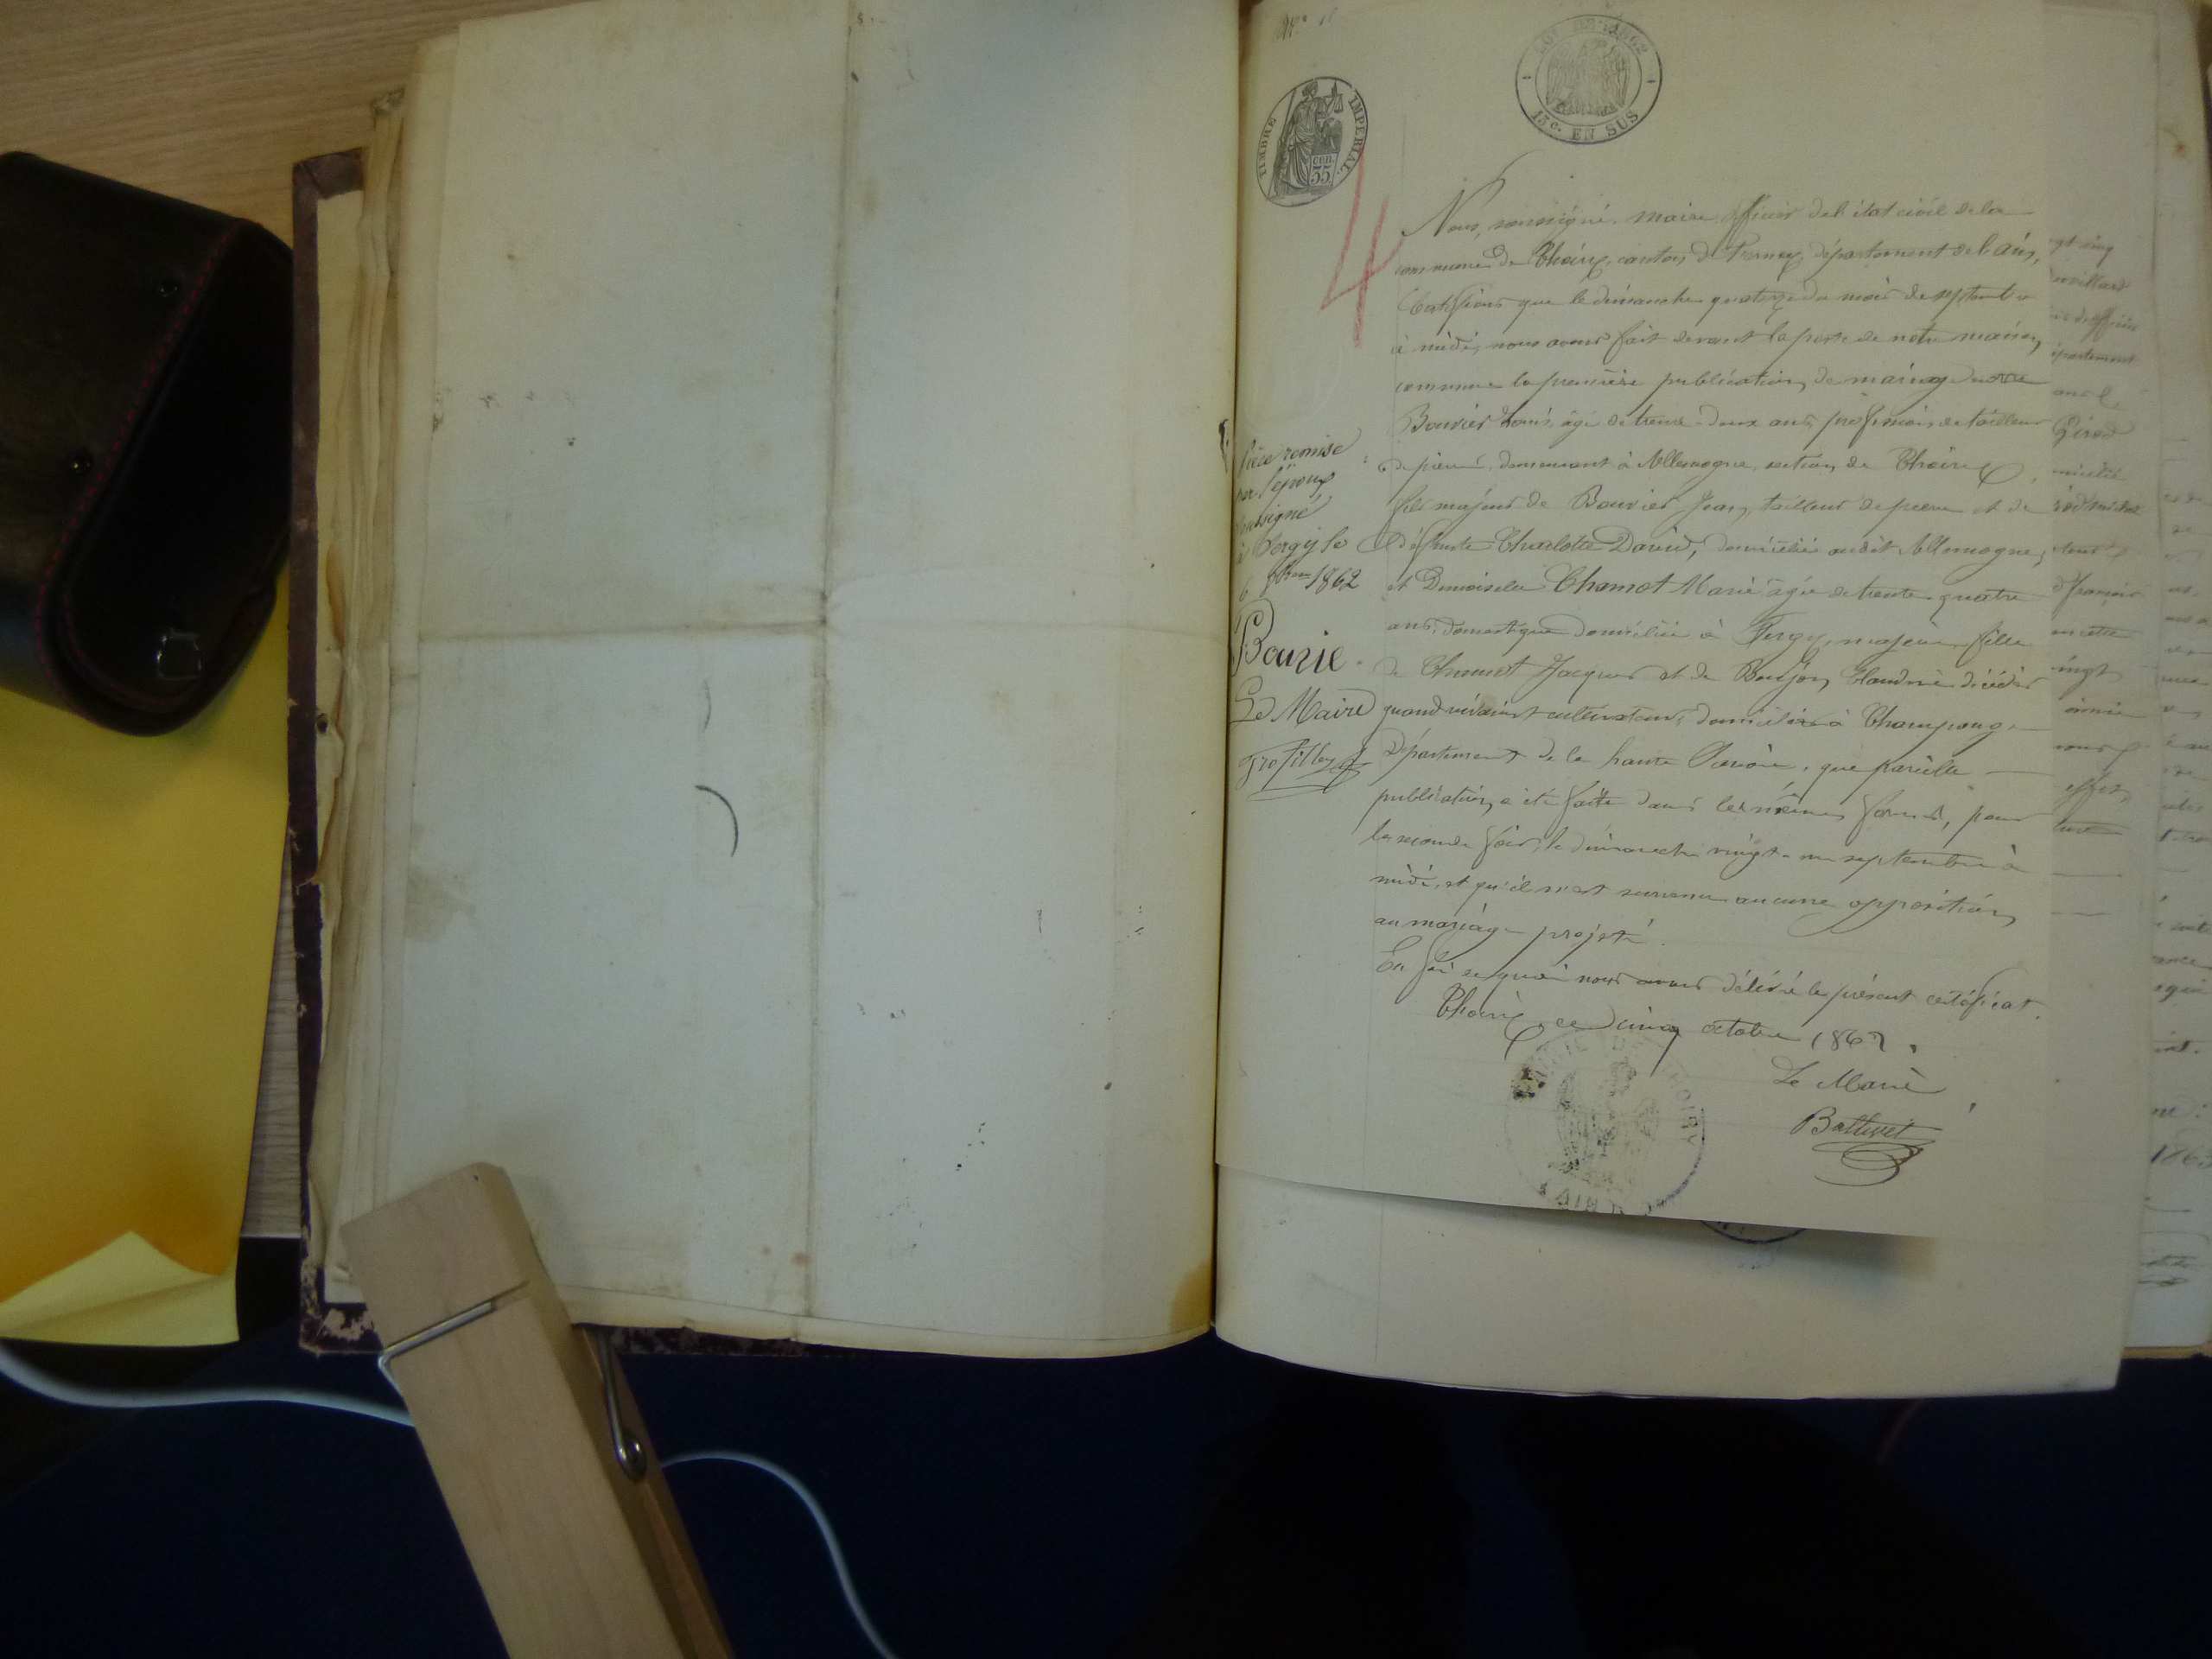 LOI DE 1862
15 c. EN SUS
TIMBRE IMPERIAL
CEN. 35
4
Nous, soussigné, maire, officier de l'état civil de la
commune de Thoiry, canton de Ferney, département de l'ain,
Certifions que le dimanche quatorze du mois de septembre
à midi, nous avons fait devant la porte de notre maison
commune la première publication de mariage entre
Bouvier Louis, âgé de trente-deux ans, profession de tailleur
de pierre, demeurant à Allemogne, section de Thoiry,
fils majeur de Bouvier Jean, tailleur de pierre et de
défunte Charlotte David, domiciliés audit Allemogne,
et Demoiselle Chamot Marie âgée de trente-quatre
ans, domestique domiciliée à Sergy, majeure, fille
de Chamot Jacques et de Claudine décédés
quand vivaient cultivateurs, domiciliés à
Département de la haute Savoie, que pareille
publication a été faite dans les mêmes formes, pour
la seconde fois, le dimanche vingt-un septembre à
midi, et qu'il n'est survenu aucune opposition
au mariage projeté.
En foi de quoi nous avons délivré le présent certificat.
Thoiry, ce cinq octobre 1862.
Le Maire
Battivet
THOIRY
AIN
Pièce remise
par l'époux
soussigné
à Sergy le
6 8bre 1862
Bouvie
Le Maire